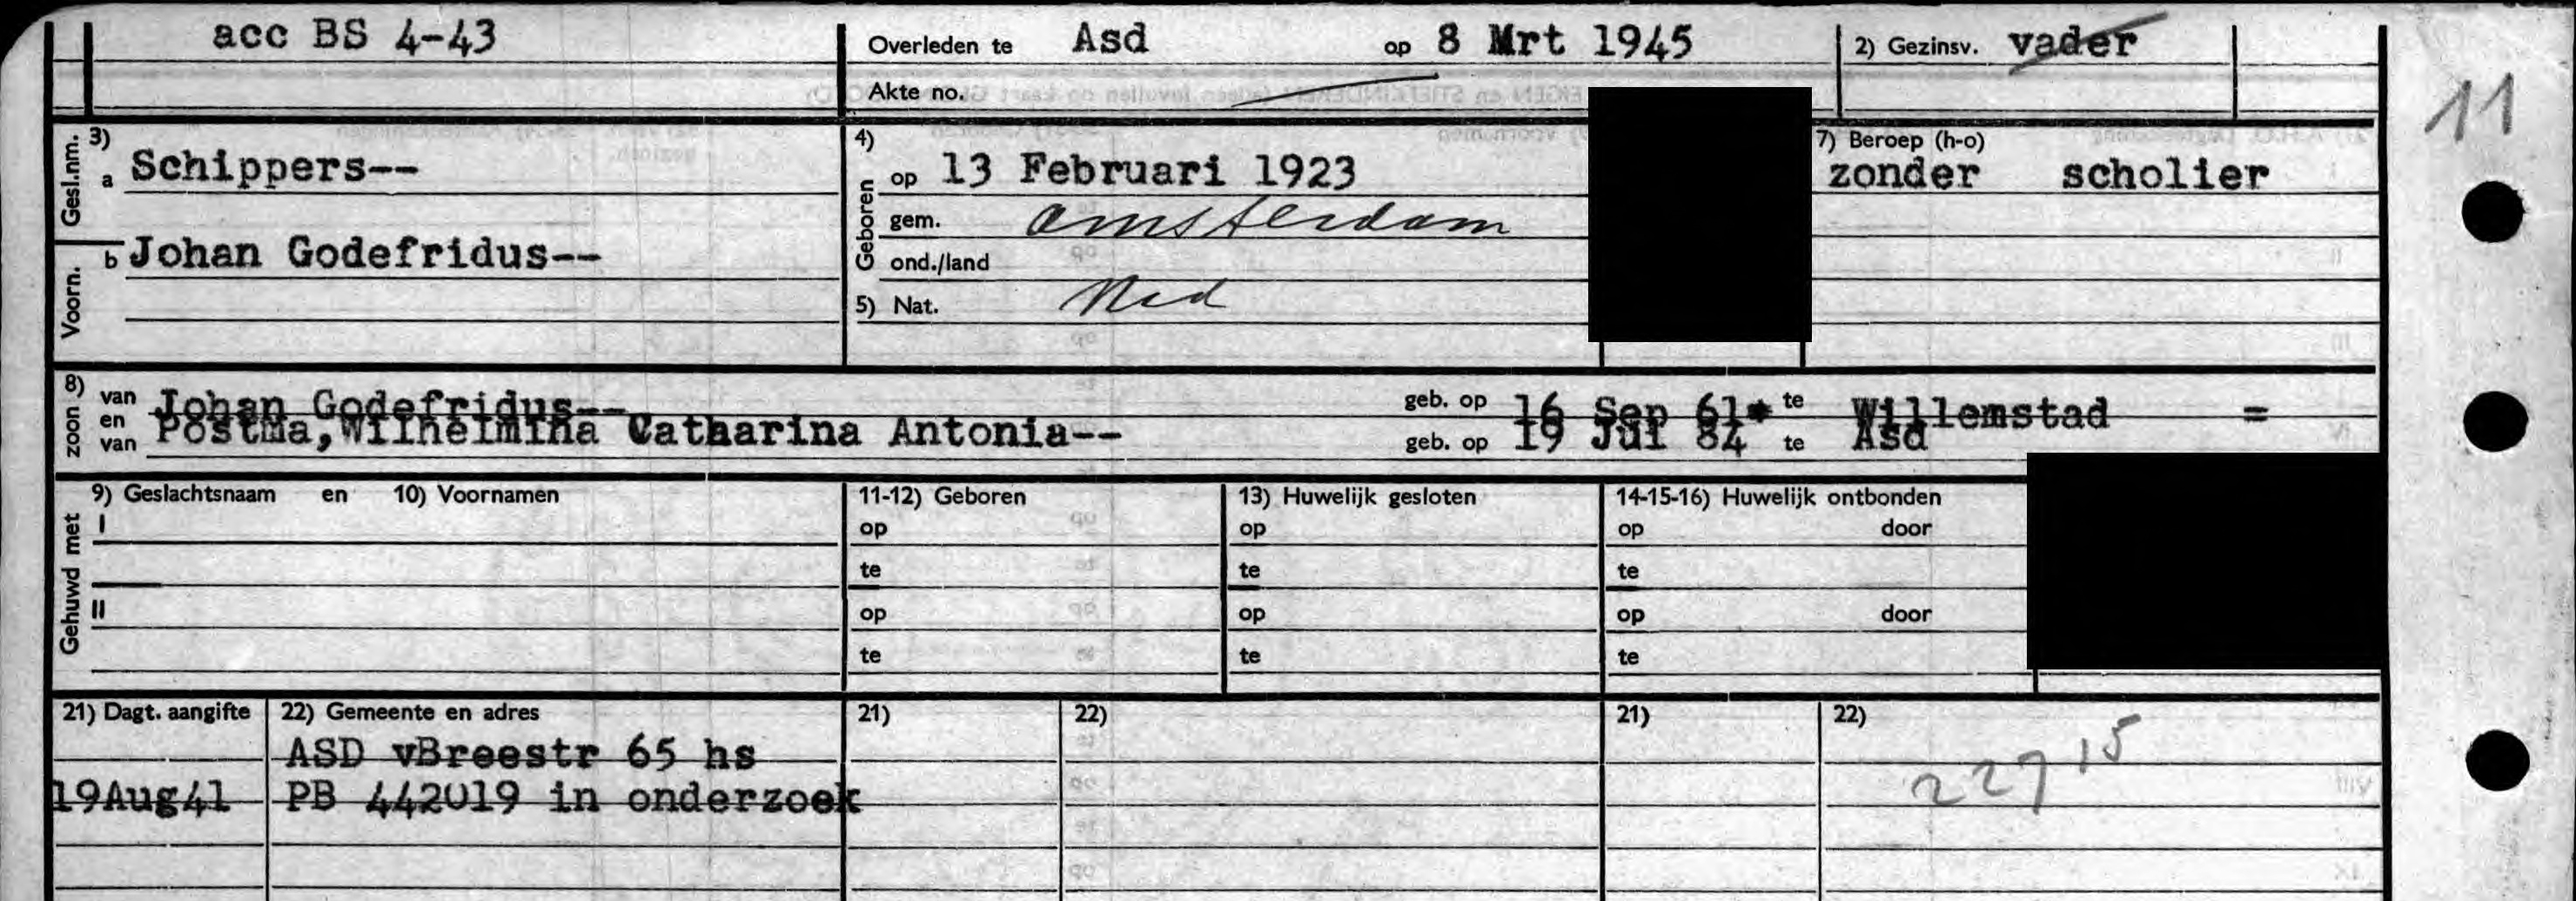 acc BS 4-43
Overleden te Asd op 8 Mrt 1945
2) Gezinsv. vader
Akte no.
11
Gesl.nm. 3) a Schippers--
Voorn. b Johan Godefridus--
4) Geboren op 13 Februari 1923
gem. Amsterdam
ond./land
5) Nat. Ned
7) Beroep (h-o)
zonder scholier
8) zoon van Johan Godefridus-- geb. op 16 Sep 61* te Willemstad =
en van Postma, Wilhelmina Catharina Antonia-- geb. op 19 Jul 84 te Asd
Gehuwd met
9) Geslachtsnaam en 10) Voornamen
11-12) Geboren
13) Huwelijk gesloten
14-15-16) Huwelijk ontbonden
I op op op door
te te te
II op op op door
te te te
21) Dagt. aangifte 22) Gemeente en adres 21) 22) 21) 22)
ASD vBreestr 65 hs
19Aug41 PB 442019 in onderzoek
227 15